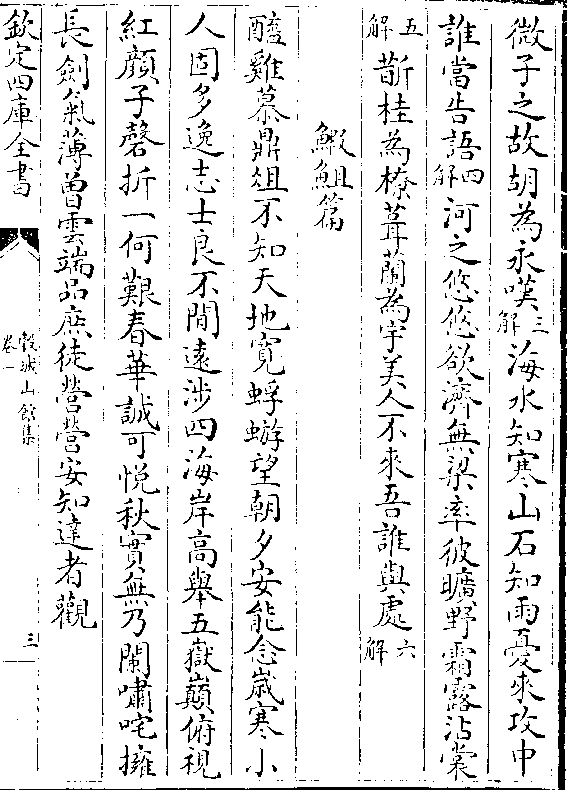 微子之故胡為永嘆三解海水知寒山石知雨憂來攻中
誰當告語四解河之悠悠欲濟無梁率彼曠野霜露沾裳
五解斮桂為橑葺蘭為宇美人不來吾誰與處六解
䱇䱉篇
醯雞慕鼎俎不知天地寬蜉蝣望朝夕安能念歲寒小
人固多逸志士良不閒遠涉四海岸高舉五嶽巔俯視
紅顏子磬折一何艱春華誠可悅秋實無乃闌嘯咤擁
長劍氣薄曾雲端品庶徒營營安知達者觀
欽定四庫全書
穀城山館集
卷一
三